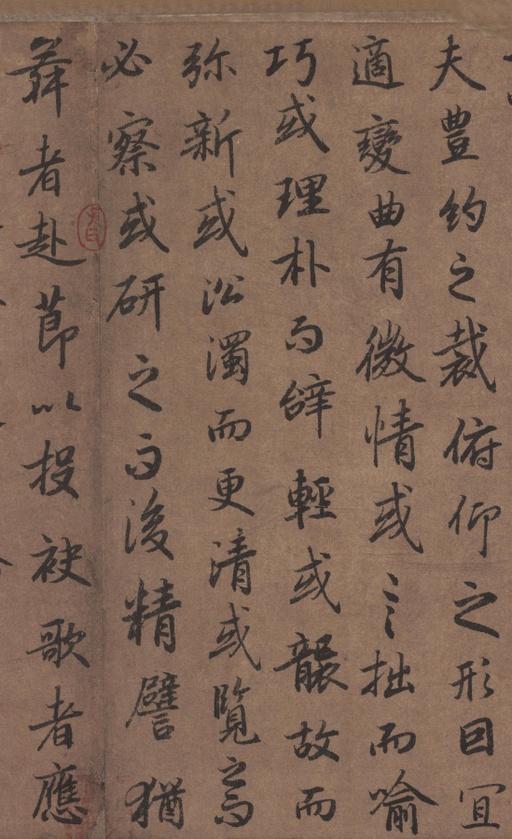 夫豊約之裁俯仰之形因宜
適變曲有微情或言拙而喻
巧或理朴而辞輕或襲故而
弥新或沿濁而更清或覽之而
必察或研之而後精譬猶
舞者赴節以投袂歌者應